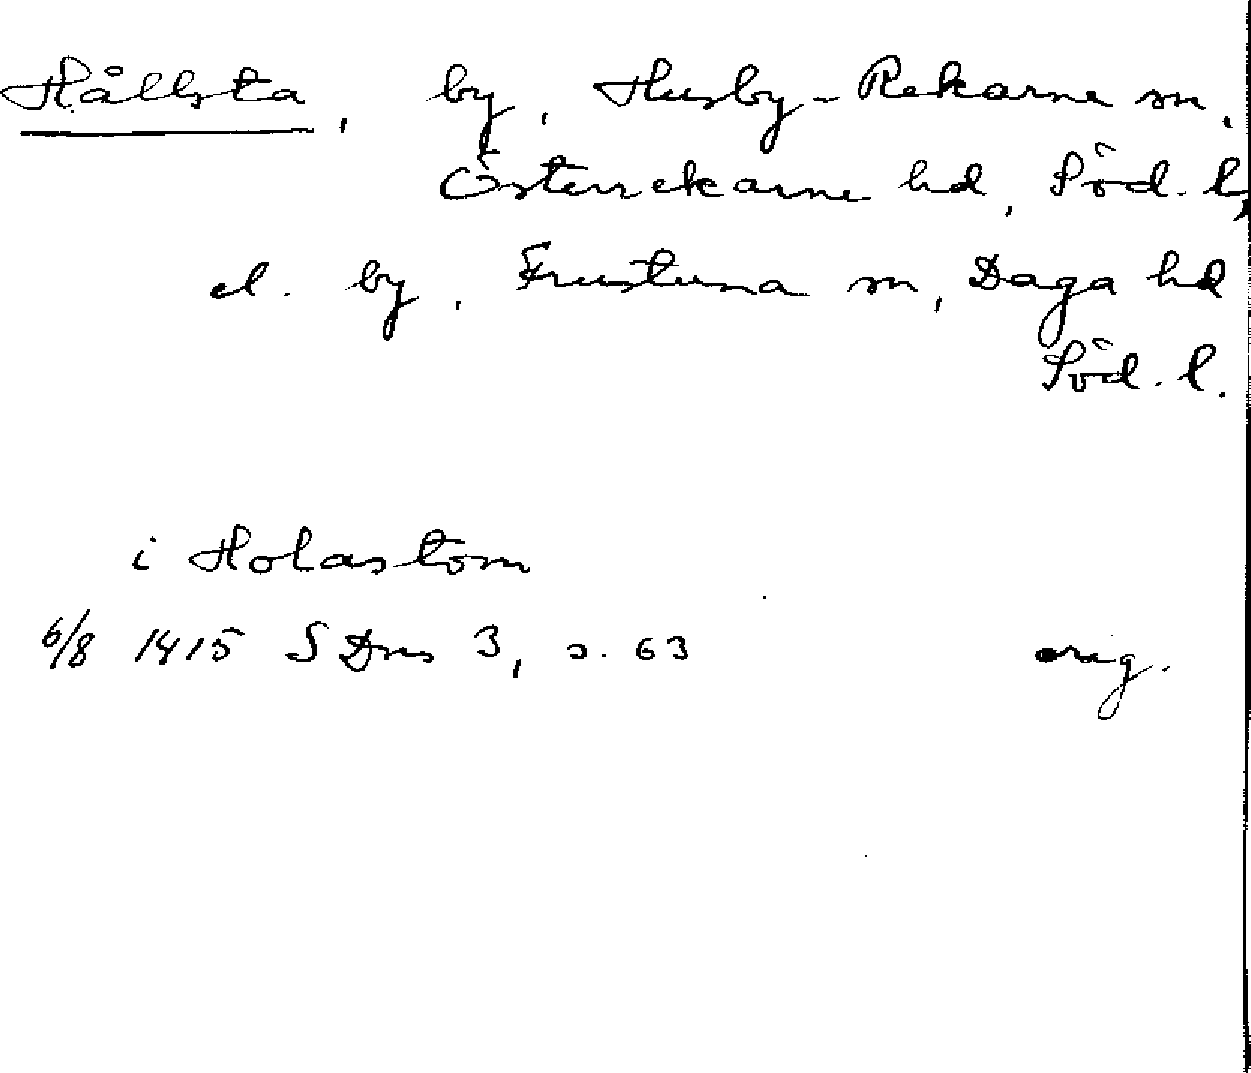 Hållsta, by, Husby-Rekarne sn,
Österrekarne hd, Söd. l,
el. by, Frustuna sn, Daga hd
Söd. l.
i Holastom
6/8 1415 SDns 3, s. 63 orig.